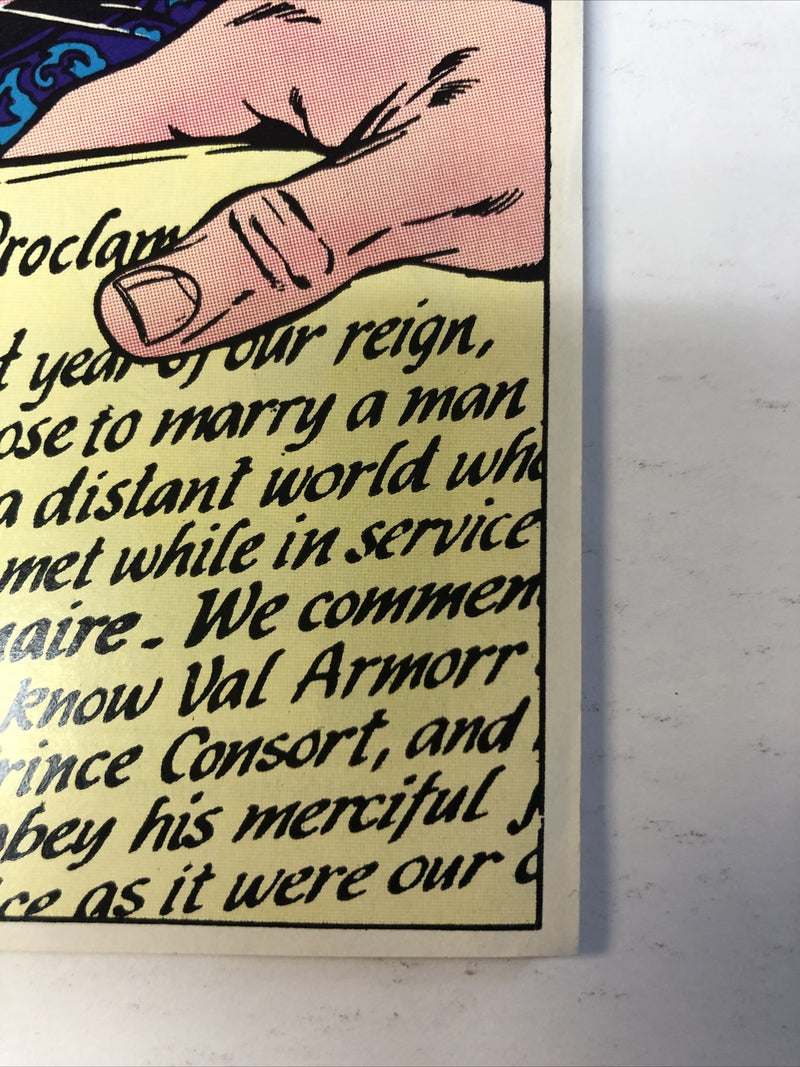 Proclam
t year of our reign,
ose to marry a man
a distant world who
met while in service
naire. We commen
know Val Armorr
rince Consort, and
obey his merciful j
ice as it were our o